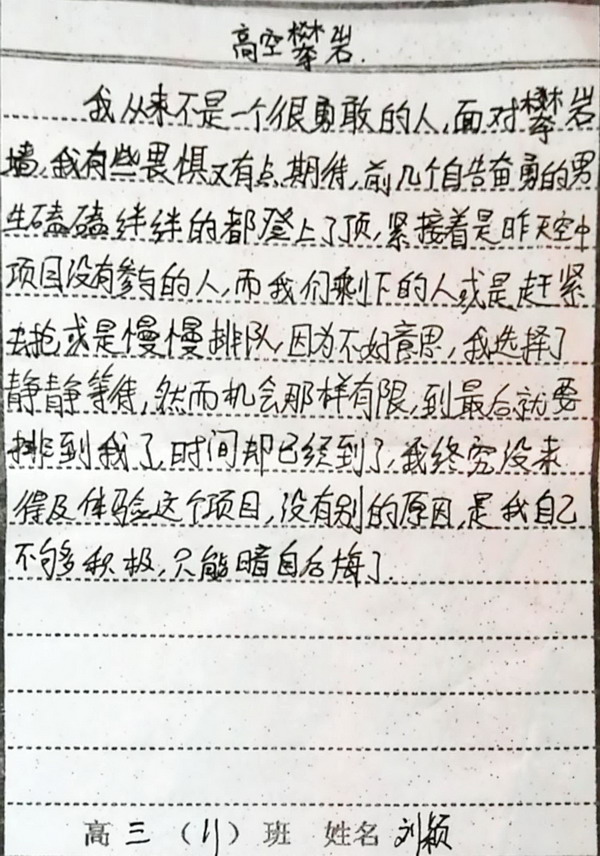 高空攀岩.
我从来不是一个很勇敢的人,面对攀岩
墙,我有些畏惧又有点期待,前几个自告奋勇的男
生磕磕绊绊的都登上了顶,紧接着是昨天空中
项目没有参与的人,而我们剩下的人或是赶紧
去抢,或是慢慢排队,因为不好意思,我选择了
静静等待,然而机会那样有限,到最后就要
排到我了,时间却已经到了,我终究没来
得及体验这个项目,没有别的原因,是我自己
不够积极,只能暗自后悔了.
高三(11)班 姓名 刘颖